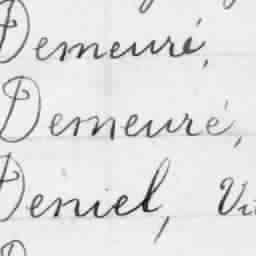 Demeuré,
Demeuré,
Déniel,